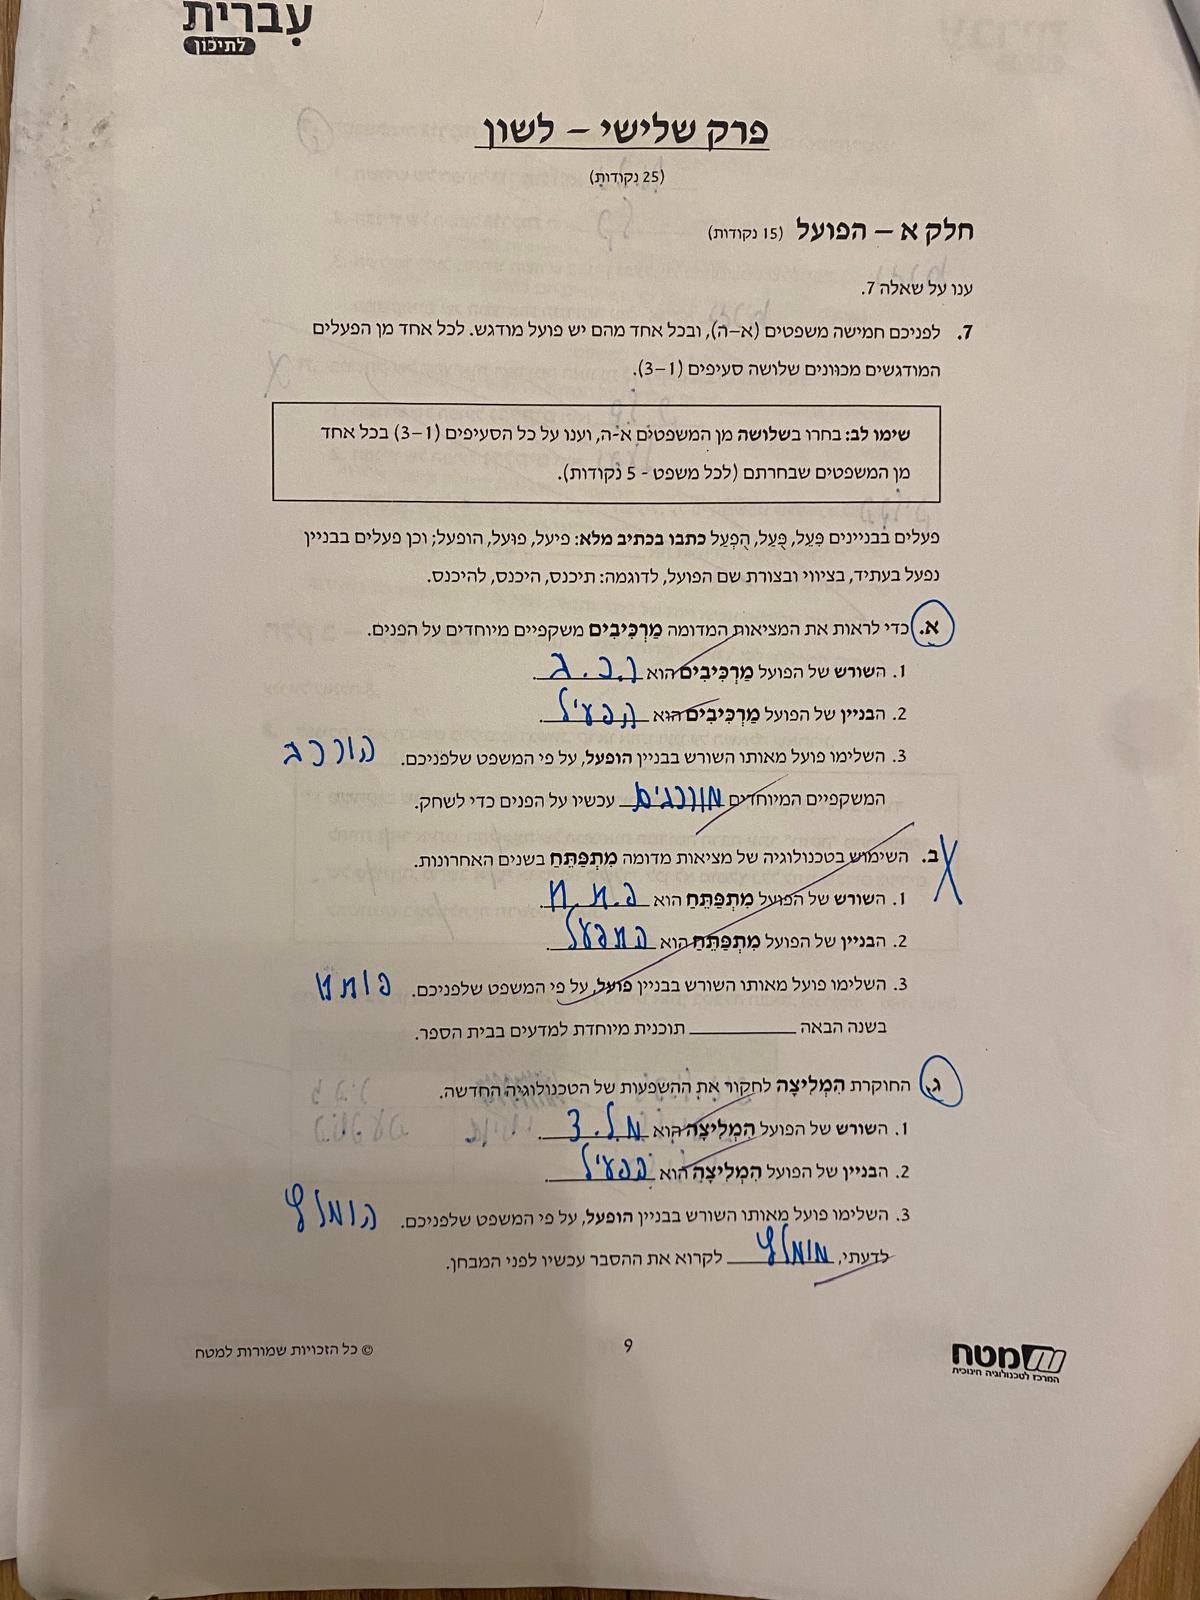 עברית
לתיכון
פרק שלישי – לשון
(25 נקודות)
חלק א – הפועל (15 נקודות)
ענו על שאלה 7.
7. לפניכם חמישה משפטים (א–ה), ובכל אחד מהם יש פועל מודגש. לכל אחד מן הפעלים
המודגשים מכוונים שלושה סעיפים (1–3).
שימו לב: בחרו בשלושה מן המשפטים א-ה, וענו על כל הסעיפים (1–3) בכל אחד
מן המשפטים שבחרתם (לכל משפט - 5 נקודות).
פעלים בבניינים פִּעֵל, פֻּעַל, הֻפְעַל כתבו בכתיב מלא: פיעל, פועל, הופעל; וכן פעלים בבניין
נפעל בעתיד, בציווי ובצורת שם הפועל, לדוגמה: תיכנס, היכנס, להיכנס.
א. כדי לראות את המציאות המדומה מַרְכִּיבִים משקפיים מיוחדים על הפנים.
1. השורש של הפועל מַרְכִּיבִים הוא ר.כ.ב.
2. הבניין של הפועל מַרְכִּיבִים הוא הפעיל.
3. השלימו פועל מאותו השורש בבניין הופעל, על פי המשפט שלפניכם. הורכב
המשקפיים המיוחדים מורכבים עכשיו על הפנים כדי לשחק.
ב. השימוש בטכנולוגיה של מציאות מדומה מִתְפַּתֵּחַ בשנים האחרונות.
1. השורש של הפועל מִתְפַּתֵּחַ הוא פ.ת.ח.
2. הבניין של הפועל מִתְפַּתֵּחַ הוא התפעל.
3. השלימו פועל מאותו השורש בבניין פועל, על פי המשפט שלפניכם. פותח
בשנה הבאה ________ תוכנית מיוחדת למדעים בבית הספר.
ג. החוקרת הִמְלִיצָה לחקור את ההשפעות של הטכנולוגיה החדשה.
1. השורש של הפועל הִמְלִיצָה הוא מ.ל.צ.
2. הבניין של הפועל הִמְלִיצָה הוא הפעיל.
3. השלימו פועל מאותו השורש בבניין הופעל, על פי המשפט שלפניכם. הומלץ
לדעתי, מומלץ לקרוא את ההסבר עכשיו לפני המבחן.
© כל הזכויות שמורות למטח
9
מטח
המרכז לטכנולוגיה חינוכית